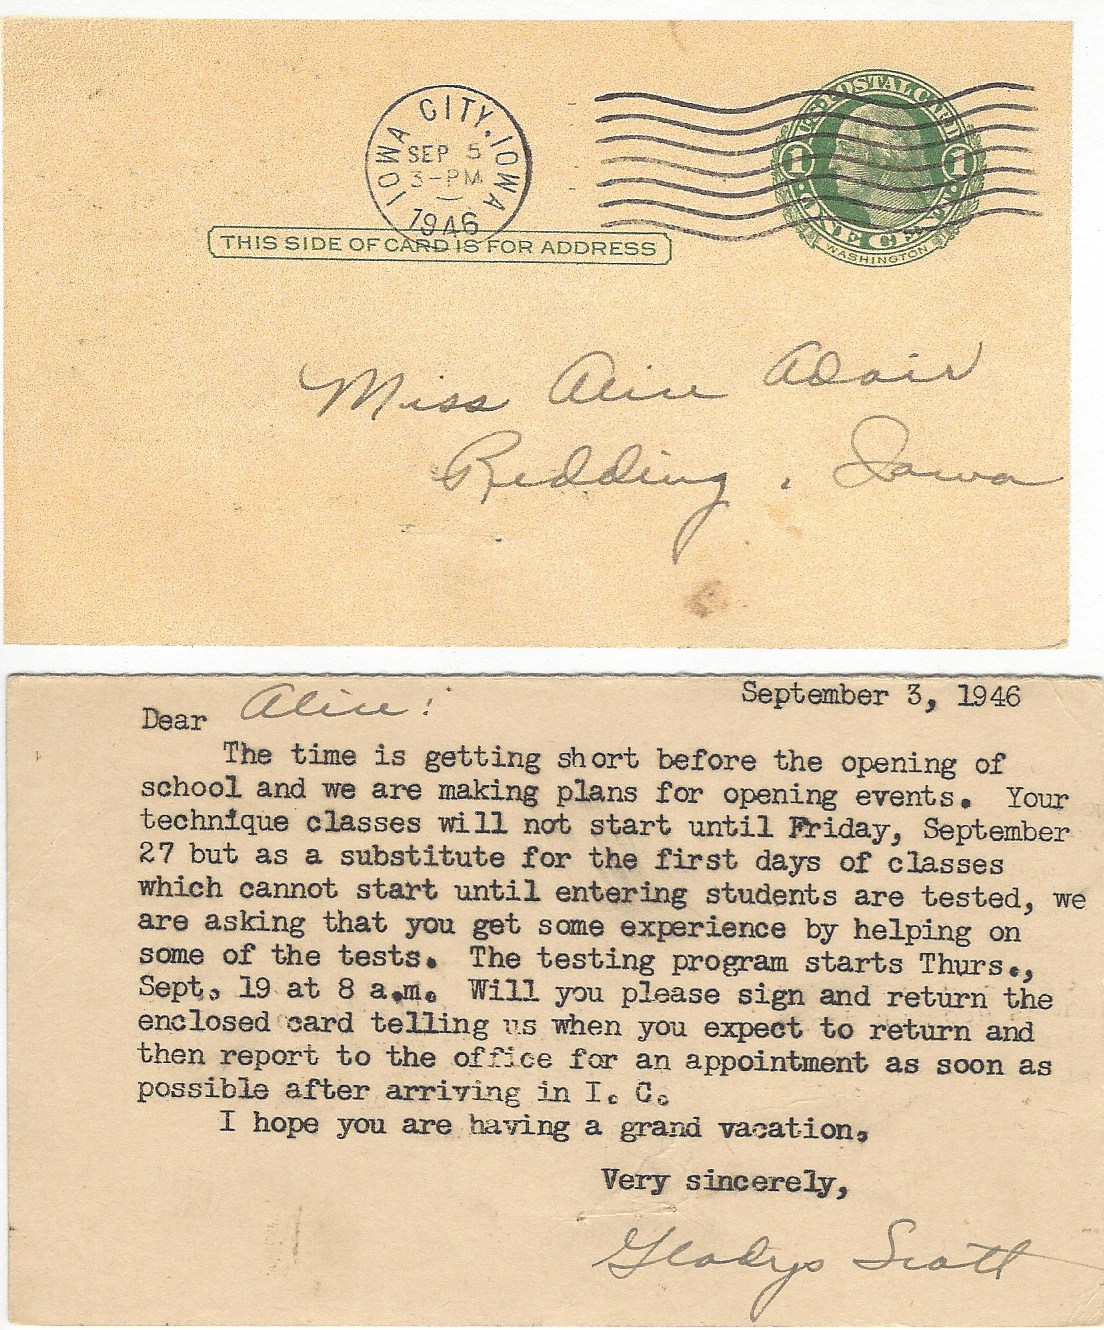 IOWA CITY, IOWA
SEP 5
3-PM
1946
U.S. POSTAL CARD
1 1
ONE CENT
WASHINGTON
THIS SIDE OF CARD IS FOR ADDRESS
Miss Alice Adair
Redding, Iowa
September 3, 1946
Dear Alice:
The time is getting short before the opening of
school and we are making plans for opening events. Your
technique classes will not start until Friday, September
27 but as a substitute for the first days of classes
which cannot start until entering students are tested, we
are asking that you get some experience by helping on
some of the tests. The testing program starts Thurs.,
Sept. 19 at 8 a.m. Will you please sign and return the
enclosed card telling us when you expect to return and
then report to the office for an appointment as soon as
possible after arriving in I. C.
I hope you are having a grand vacation.
Very sincerely,
Gladys Scott